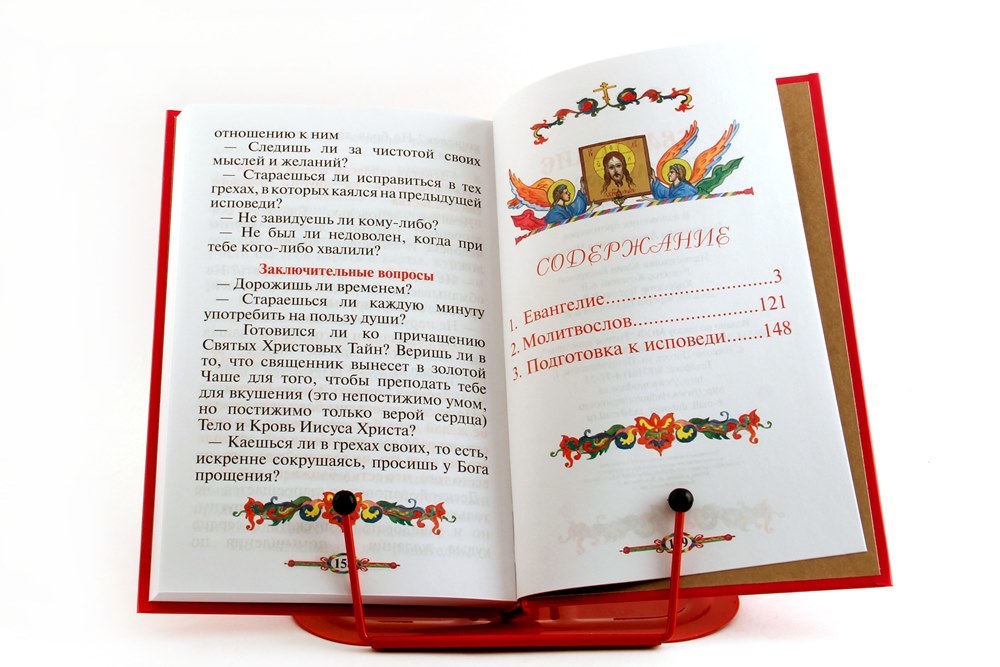 отношению к ним
— Следишь ли за чистотой своих
мыслей и желаний?
— Стараешься ли исправиться в тех
грехах, в которых каялся на предыдущей
исповеди?
— Не завидуешь ли кому-либо?
— Не был ли недоволен, когда при
тебе кого-либо хвалили?
Заключительные вопросы
— Дорожишь ли временем?
— Стараешься ли каждую минуту
употребить на пользу души?
— Готовился ли ко причащению
Святых Христовых Тайн? Веришь ли в
то, что священник вынесет в золотой
Чаше для того, чтобы преподать тебе
для вкушения (это непостижимо умом,
но постижимо только верой сердца)
Тело и Кровь Иисуса Христа?
— Каешься ли в грехах своих, то есть,
искренне сокрушаясь, просишь у Бога
прощения?
СОДЕРЖАНИЕ
1. Евангелие..............................3
2. Молитвослов......................121
3. Подготовка к исповеди.......148